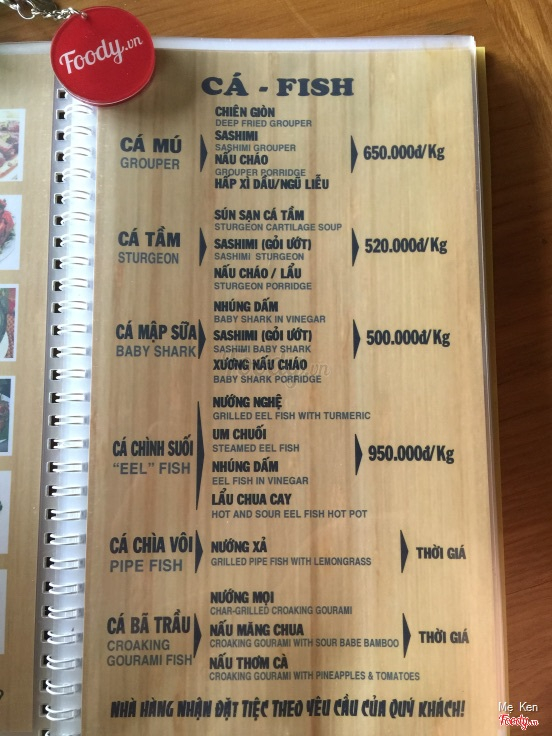 Foody.vn
CÁ - FISH
CÁ MÚ
GROUPER
CHIÊN GIÒN
DEEP FRIED GROUPER
SASHIMI
SASHIMI GROUPER
NẤU CHÁO
GROUPER PORRIDGE
HẤP XÌ DẦU/NGŨ LIỄU
650.000đ/Kg
CÁ TẦM
STURGEON
SÚN SẠN CÁ TẦM
STURGEON CARTILAGE SOUP
SASHIMI (GỎI ƯỚT)
SASHIMI STURGEON
NẤU CHÁO / LẨU
STURGEON PORRIDGE
520.000đ/Kg
CÁ MẬP SỮA
BABY SHARK
NHÚNG DẤM
BABY SHARK IN VINEGAR
SASHIMI (GỎI ƯỚT)
SASHIMI BABY SHARK
XƯƠNG NẤU CHÁO
BABY SHARK PORRIDGE
500.000đ/Kg
CÁ CHÌNH SUỐI
“EEL” FISH
NƯỚNG NGHỆ
GRILLED EEL FISH WITH TURMERIC
UM CHUỐI
STEAMED EEL FISH
NHÚNG DẤM
EEL FISH IN VINEGAR
LẨU CHUA CAY
HOT AND SOUR EEL FISH HOT POT
950.000đ/Kg
CÁ CHÌA VÔI
PIPE FISH
NƯỚNG XẢ
GRILLED PIPE FISH WITH LEMONGRASS
THỜI GIÁ
CÁ BÃ TRẦU
CROAKING
GOURAMI FISH
NƯỚNG MỌI
CHAR-GRILLED CROAKING GOURAMI
NẤU MĂNG CHUA
CROAKING GOURAMI WITH SOUR BABE BAMBOO
NẤU THƠM CÀ
CROAKING GOURAMI WITH PINEAPPLES & TOMATOES
THỜI GIÁ
NHÀ HÀNG NHẬN ĐẶT TIỆC THEO YÊU CẦU CỦA QUÝ KHÁCH!
Me Ken
Foody.vn